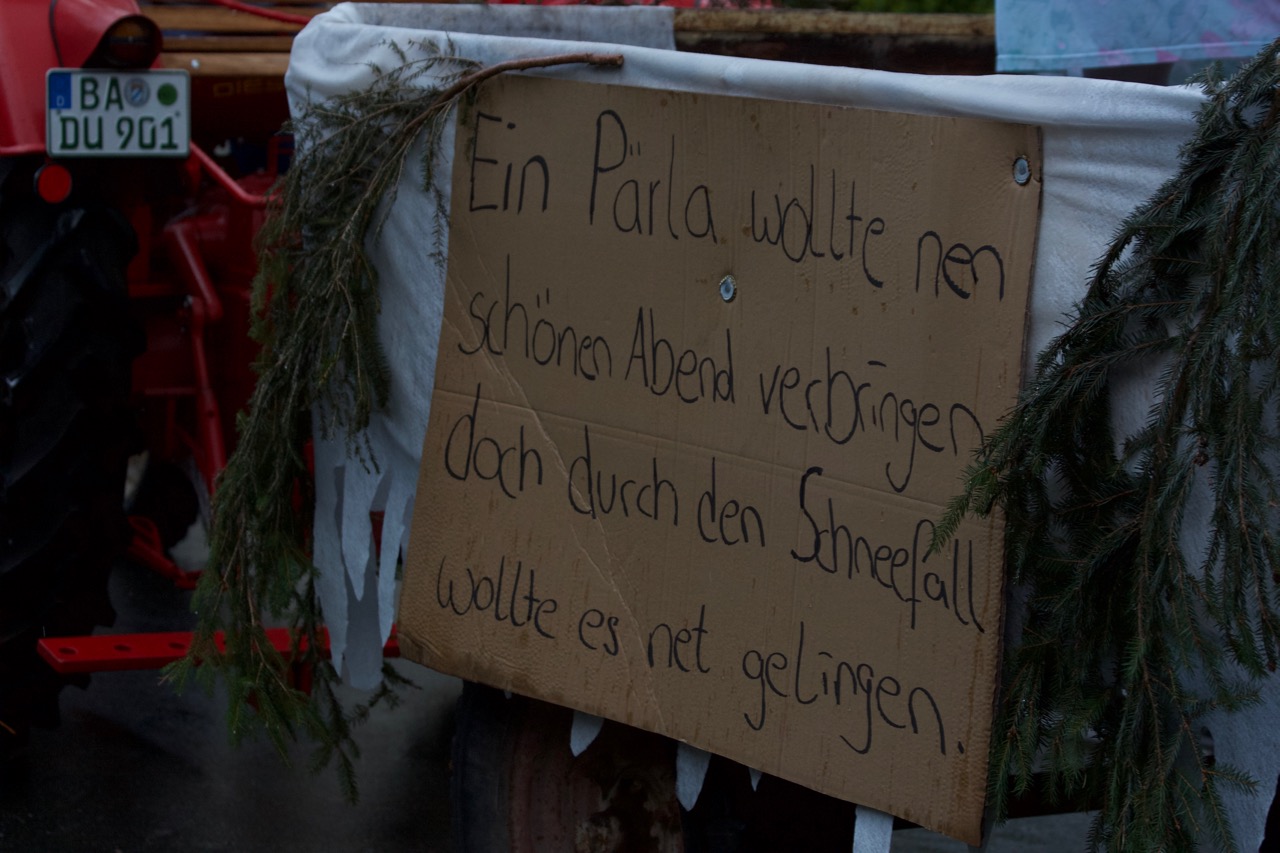 BA
DU 901
DIES
Ein Pärla wollte nen
schönen Abend verbringen
doch durch den Schneefall
wollte es net gelingen.